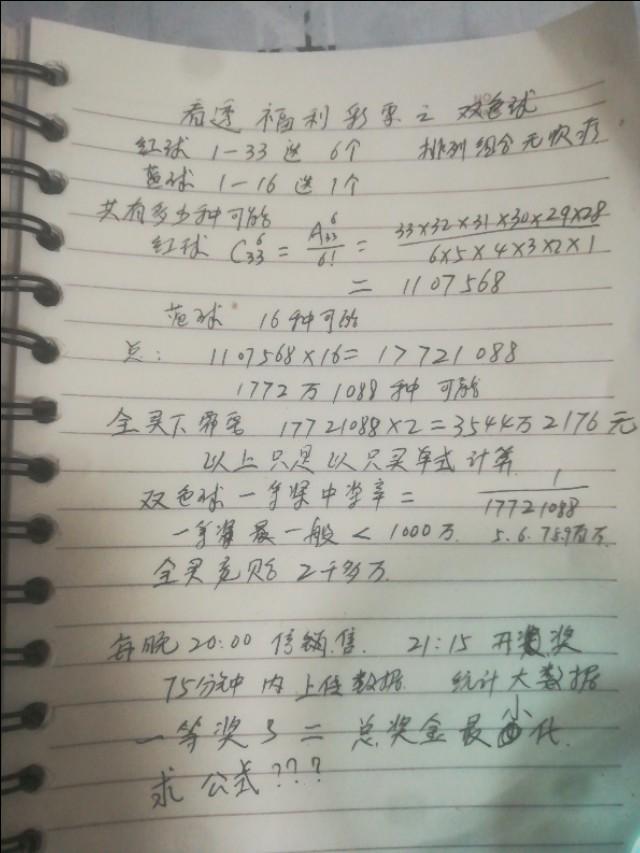 看透福利彩票之双色球
红球 1-33 选 6个 排列组合无次序
蓝球 1-16 选 1个
共有多少种可能
红球 C₃₃⁶ = A₃₃⁶/6! = 33×32×31×30×29×28/6×5×4×3×2×1
= 1107568
蓝球 16种可能
总: 1107568×16=17721088
1772万1088种可能
全买下需要 17721088×2=3544万2176元
以上只是以只买单式计算
双色球一等奖中奖率= 1/17721088
一等奖最一般<1000万 5.6.7.8.9百万
全买完赔2千多万
每晚20:00停销售. 21:15开奖
75分钟内上传数据 统计大数据
一等奖号=总奖金最小化
求公式???